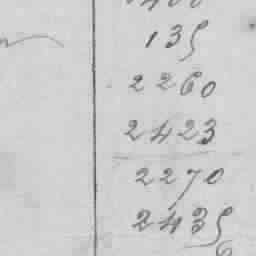 135
2260
2423
2270
2435